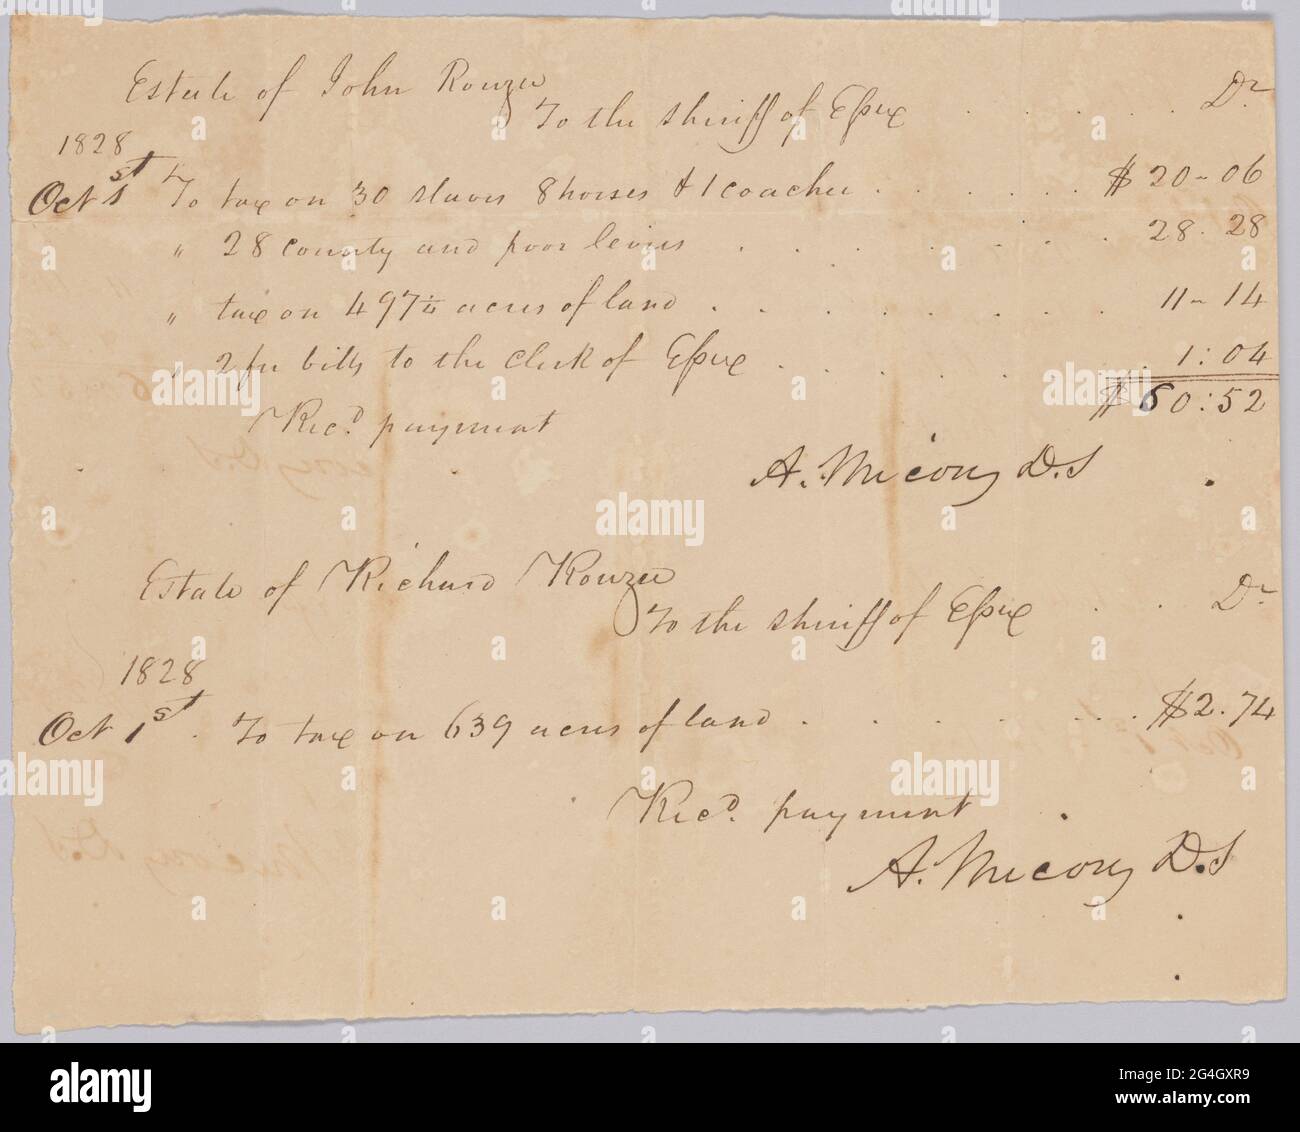 Estate of John Rouzee
To the sheriff of Essex . . . . . Dr
1828
Oct 1st To tax on 30 slaves 8 horses & 1 coachee . . . . . . $ 20-06
" 28 county and poor levies . . . . . . . 28.28
" tax on 497 1/4 acres of land . . . . . . . . 11-14
" 2 fee bills to the clerk of Essex . . . . . . . 1:04
$ 60:52
Recd. payment
A. Micou, D.S
Estate of Richard Rouzee
To the sheriff of Essex . . . Dr
1828
Oct 1st . To tax on 639 acres of land . . . . . . . $2.74
Recd. payment
A. Micou, D.S
alamy
Image ID: 2G4GXR9
www.alamy.com